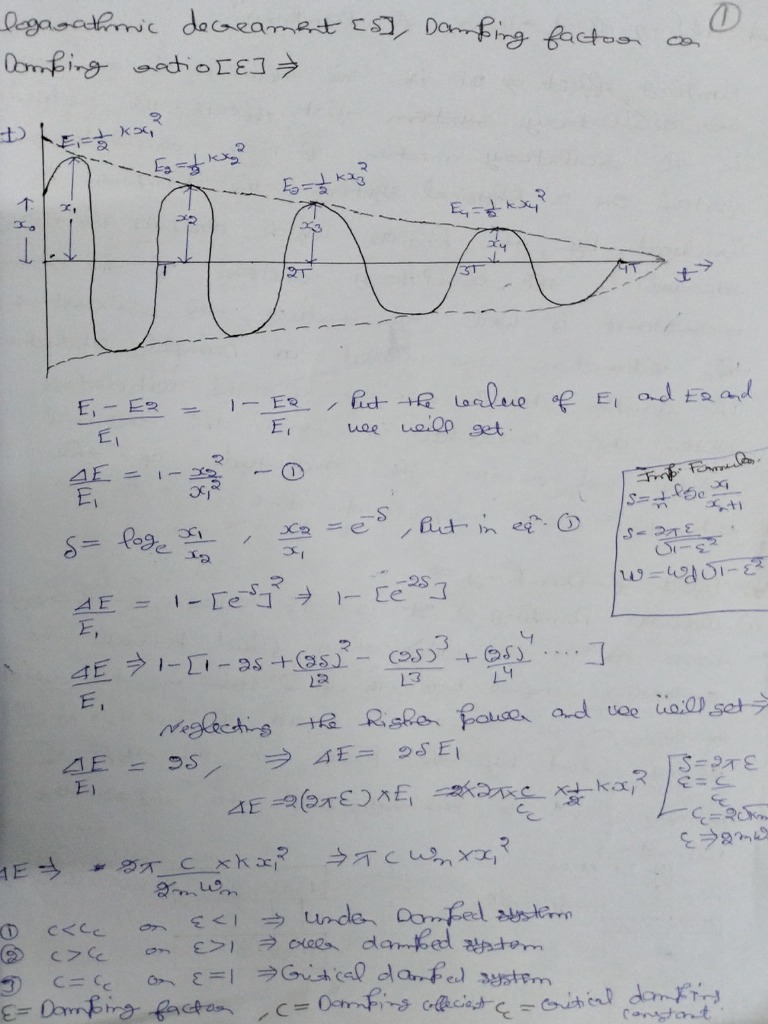 ①
logarathmic decreament [δ], Damping factor or
Damping ratio [ε] ⇒
E₁=½ kx₁²
E₂=½ kx₂²
E₃=½ kx₃²
E₄=½ kx₄²
↑ x₀ ↓
x₁
x₂
x₃
x₄
T
2T
3T
4T
t→
(E₁ - E2)/E₁ = 1 - E2/E₁ , Put the value of E₁ and E2 and
we will get.
ΔE/E₁ = 1 - x₂²/x₁² - ①
δ = logₑ x₁/x₂ , x₂/x₁ = e^-δ , Put in eqⁿ ①
Imp. Formula
δ = 1/n logₑ x₁/xₙ₊₁
δ = 2πε/√1-ε²
ω = ωd √1-ε²
ΔE/E₁ = 1 - [e^-δ]² ⇒ 1 - [e^-2δ]
ΔE/E₁ ⇒ 1 - [1 - 2δ + (2δ)²/L2 - (2δ)³/L3 + (2δ)⁴/L4 ....]
Neglecting the higher power and we will get ⇒
ΔE/E₁ = 2δ, ⇒ ΔE = 2δE₁
ΔE = 2(2πε) × E₁ = 2×2π×c/c_c × ½ kx₁²
δ = 2πε
ε = c/c_c
ΔE ⇒ 2π c/2mωₙ × kx₁² ⇒ π c ωₙ × x₁²
① c<c_c or ε<1 ⇒ Under Damped system
② c>c_c or ε>1 ⇒ over damped system
③ c=c_c or ε=1 ⇒ Critical damped system
ε = Damping factor , c = Damping cofficient c_c = critical damping
constant.